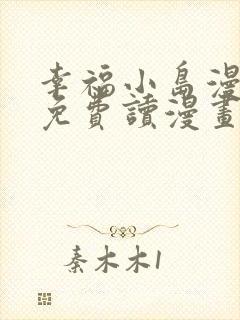 幸福小島漫
免費讀漫畫
秦木木1